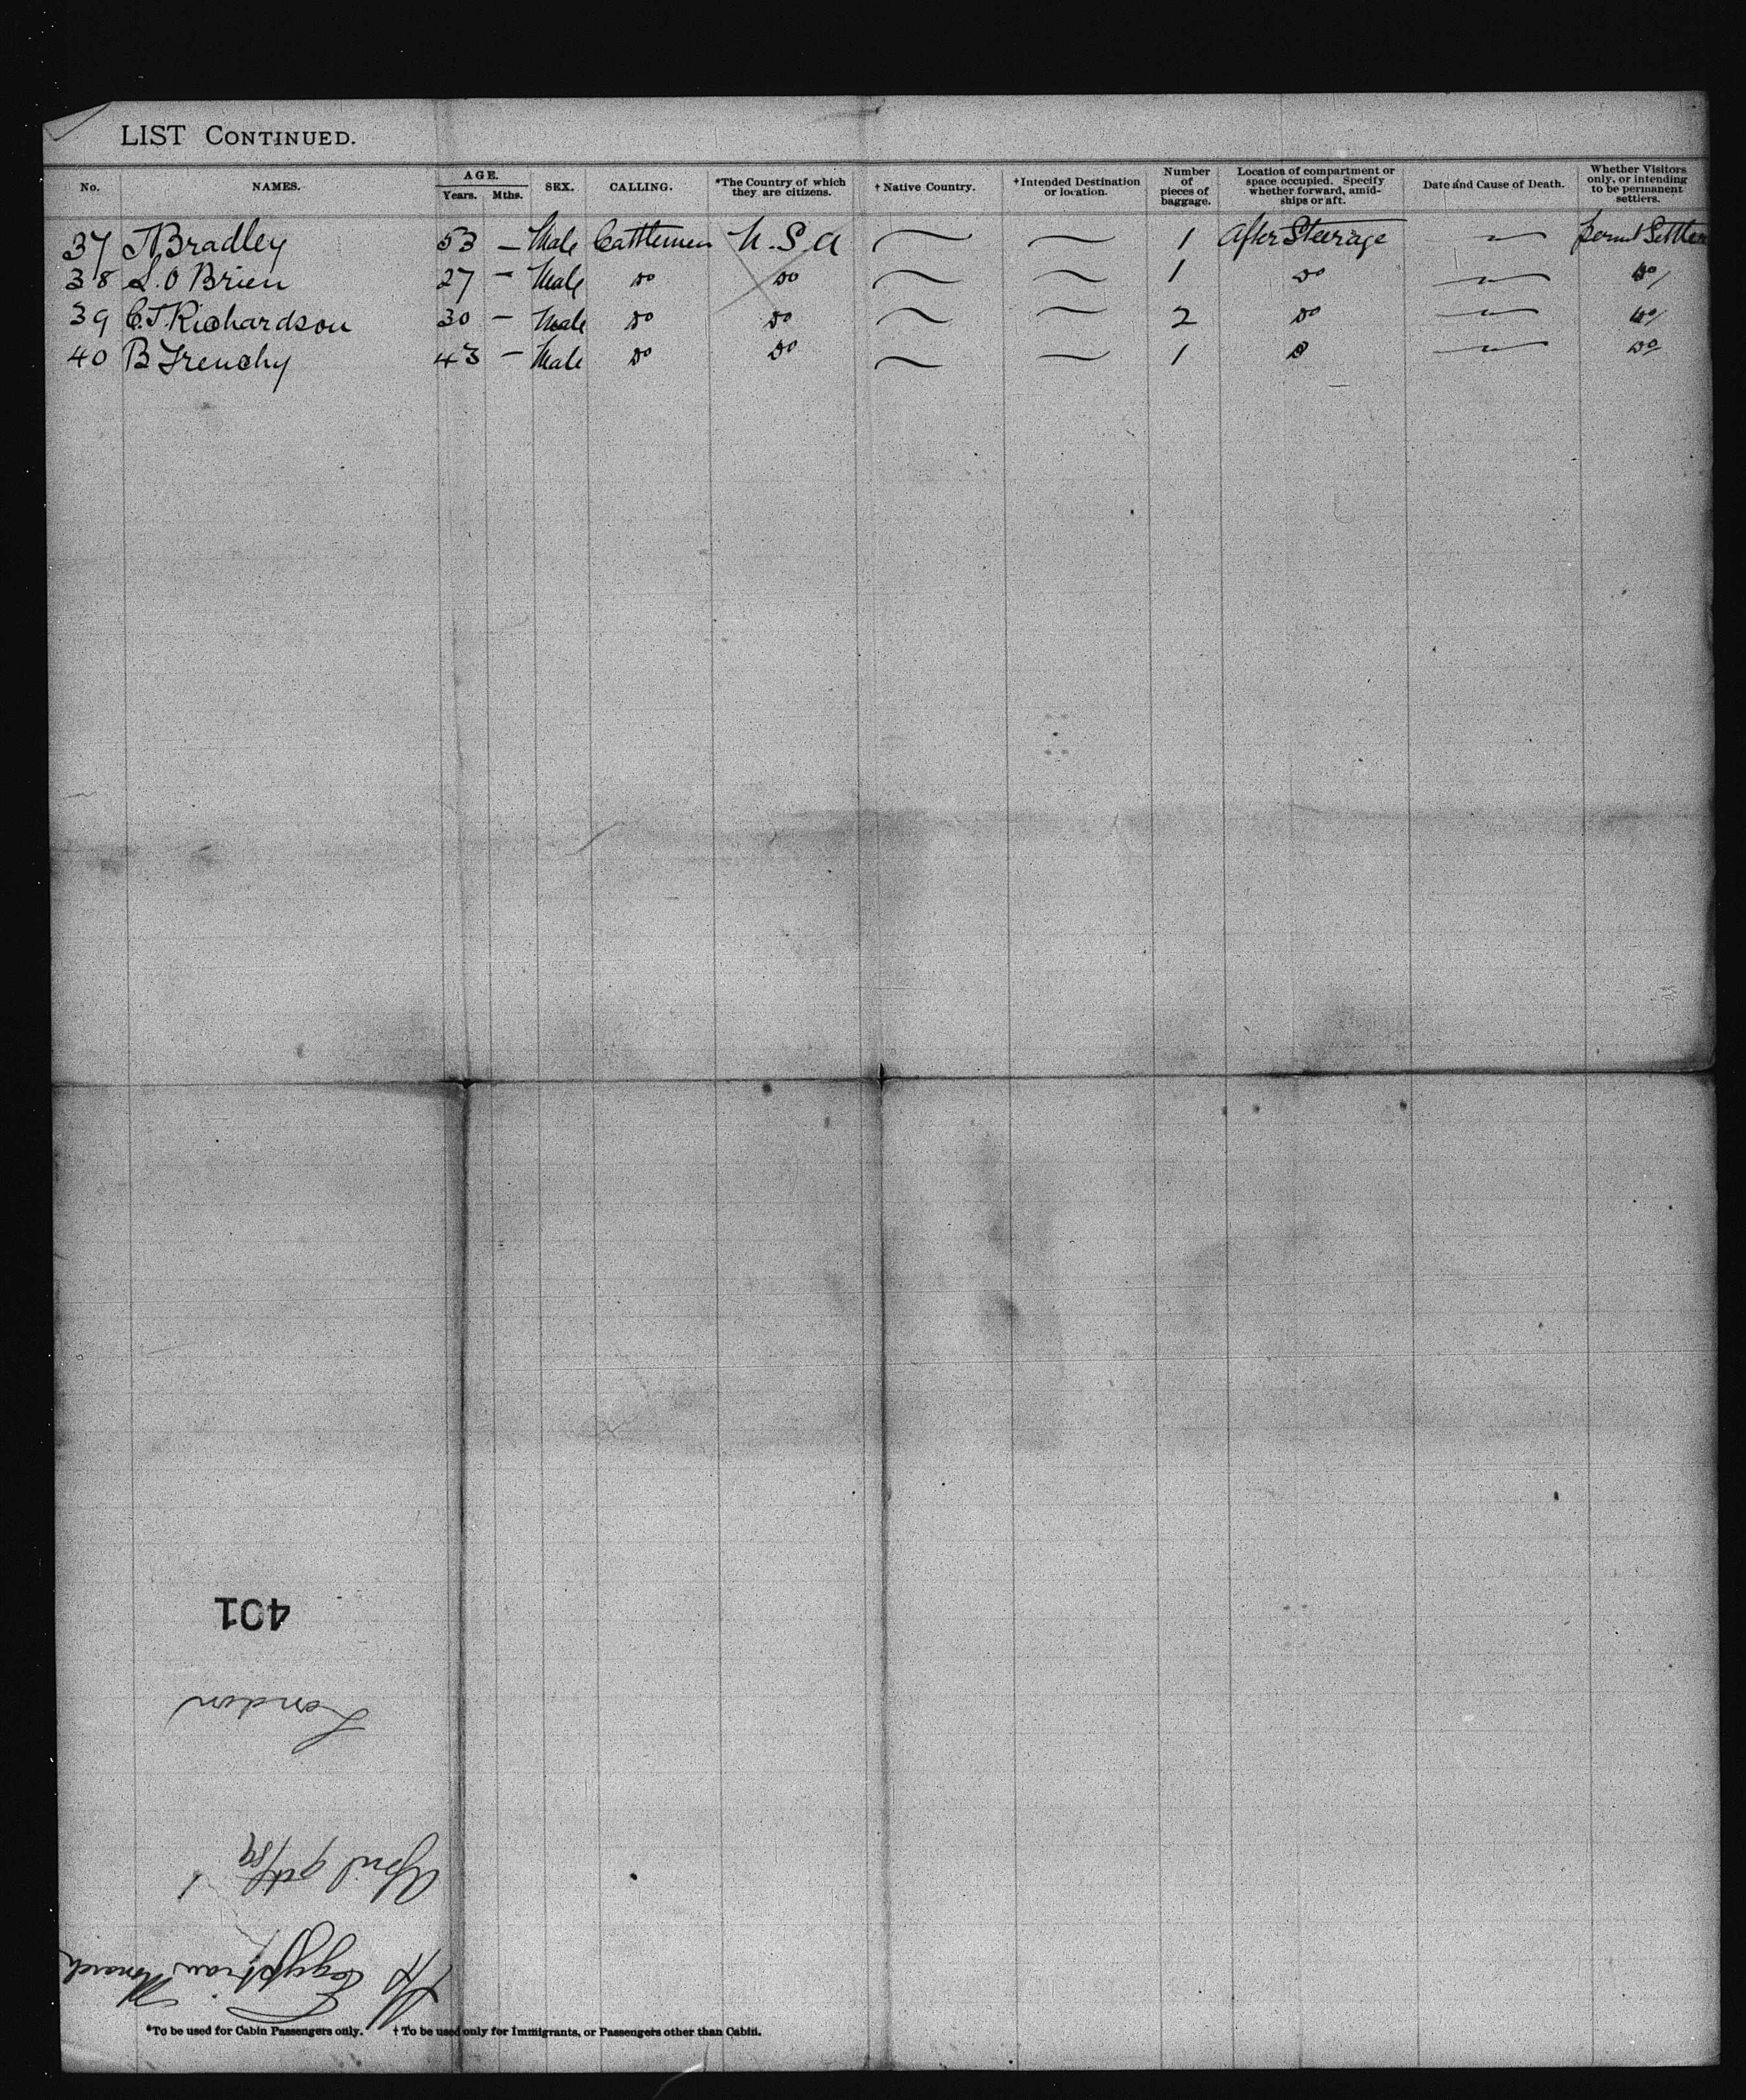 LIST CONTINUED.
No. NAMES. AGE. Years. Mths. SEX. CALLING. *The Country of which they are citizens. † Native Country. †Intended Destination or location. Number of pieces of baggage. Location of compartment or space occupied. Specify whether forward, amid-ships or aft. Date and Cause of Death. Whether Visitors only, or intending to be permanent settlers.
37 J Bradley 53 — Male Cattlemen U.S.A ~ ~ 1 After Steerage — Permt Settler
38 L. O Brien 27 — Male Do Do ~ ~ 1 Do — Do
39 C.J. Richardson 30 — Male Do Do ~ ~ 2 Do — Do
40 B Frenchy 43 — Male Do Do ~ ~ 1 Do — Do
401
London
April 9th/89
SS Egyptian Monarch
*To be used for Cabin Passengers only. † To be used only for Immigrants, or Passengers other than Cabin.